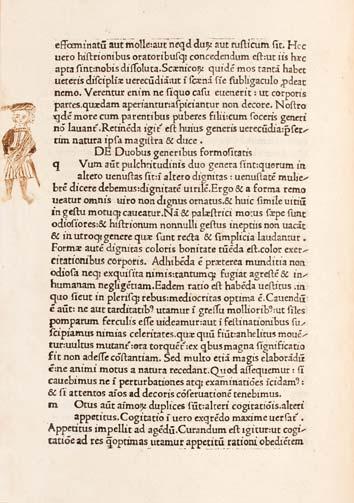 effœminatũ aut molle: aut neqd durꝝ aut rusticum sit. Hec
uero histrionibus oratoribusq; concedendum est: ut iis hæc
apta sint: nobis dissoluta. Scænicoꝝ quidẽ mos tantã habet
ueteris disciplĩæ uerecũdiã: ut ĩ scenã sie subligaculo ꝓdeat
nemo. Verentur enim ne siquo casu euenerit: ut corporis
partes quædam aperiantur: aspiciantur non decore. Nostro
qdẽ more cum parentibus puberes filii: cum soceris generi
nõ lauant. Retinẽda igit̃ est huius generis uerecũdia: p̃ser
tim natura ipsa magistra & duce.
DE Duobus generibus formositatis
q Vum aũt pulchritudinis duo genera sint: quorum in
altero uenustas sit: ĩ altero dignitas: uenustatẽ mulie
brẽ dicere debemus: dignitatẽ uirilẽ. Ergo & a forma remo
ueatur omnis uiro non dignus ornatus: & huic simile uitiũ
in gestu motuq; caueatur. Nã & palæstrici mot9 sæpe sunt
odiosiores: & histrionum nonnulli gestus ineptiis non uacãt
& in utroq; genere quæ sunt recta & simplicia laudantur.
Formæ autẽ dignitas coloris bonitate tuẽda est: color exer-
citationibus corporis. Adhibẽda ẽ præterea munditia non
odiosa neq; exquisita nimis: tantum q; fugiat agrestẽ & in
humanam negligẽtiam. Eadem ratio est habẽda uestitus: in
quo sicut in plerisq; rebus: mediocritas optima ẽ. Cauendũ
ẽ aũt: ne aut tarditatib9 utamur ĩ gressu mollioribus: ut siles
pomparum ferculis esse uideamur: aut ĩ festinationibus su-
scipiamus nimias celeritates. quæ quũ fiũt: anhelitus mouẽ-
tur: uultus mutant̃: ora torquẽt̃: ex qbus magna significatio
fit non adesse cõstantiam. Sed multo etiã magis elaborãdũ
ẽ: ne animi motus a natura recedant. Quod assequemur: si
cauebimus ne ĩ perturbationes atq; examinatiões ĩcidam9:
& si attentos aĩos ad decoris cõseruationẽ tenebimus.
m Otus aũt aĩmoꝝ duplices sũt: alteri cogitatiõis: alteri
appetitus. Cogitatio ĩ uero exqrẽdo maxime uersat̃.
Appetitus impellit ad agẽdũ. Curandum est igitur: ut cogi
tatiõe ad res q̃optimas utamur appetitũ rationi obediẽtem